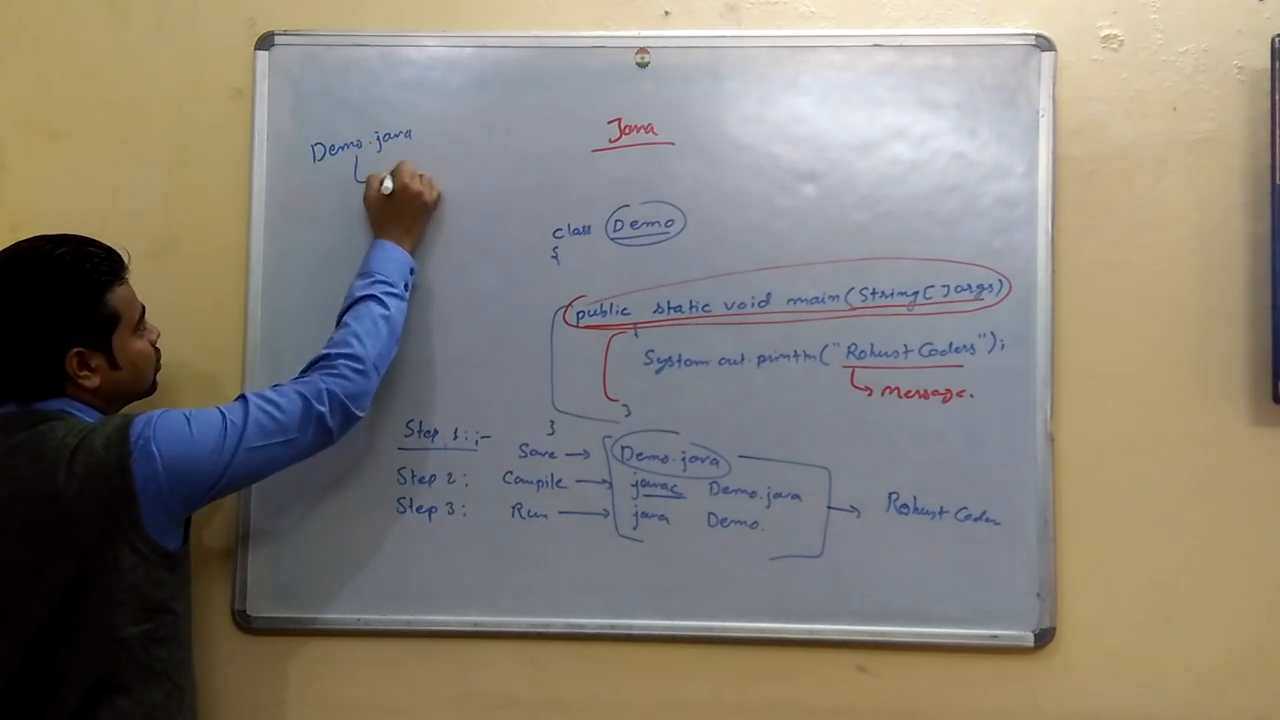 Java
Demo.java
class Demo
{
public static void main(String[] args)
{
System.out.println("Robust Coders");
Message.
}
}
Step 1:;- Save → Demo.java
Step 2: Compile → javac Demo.java
Step 3: Run → java Demo.
→ Robust Coders